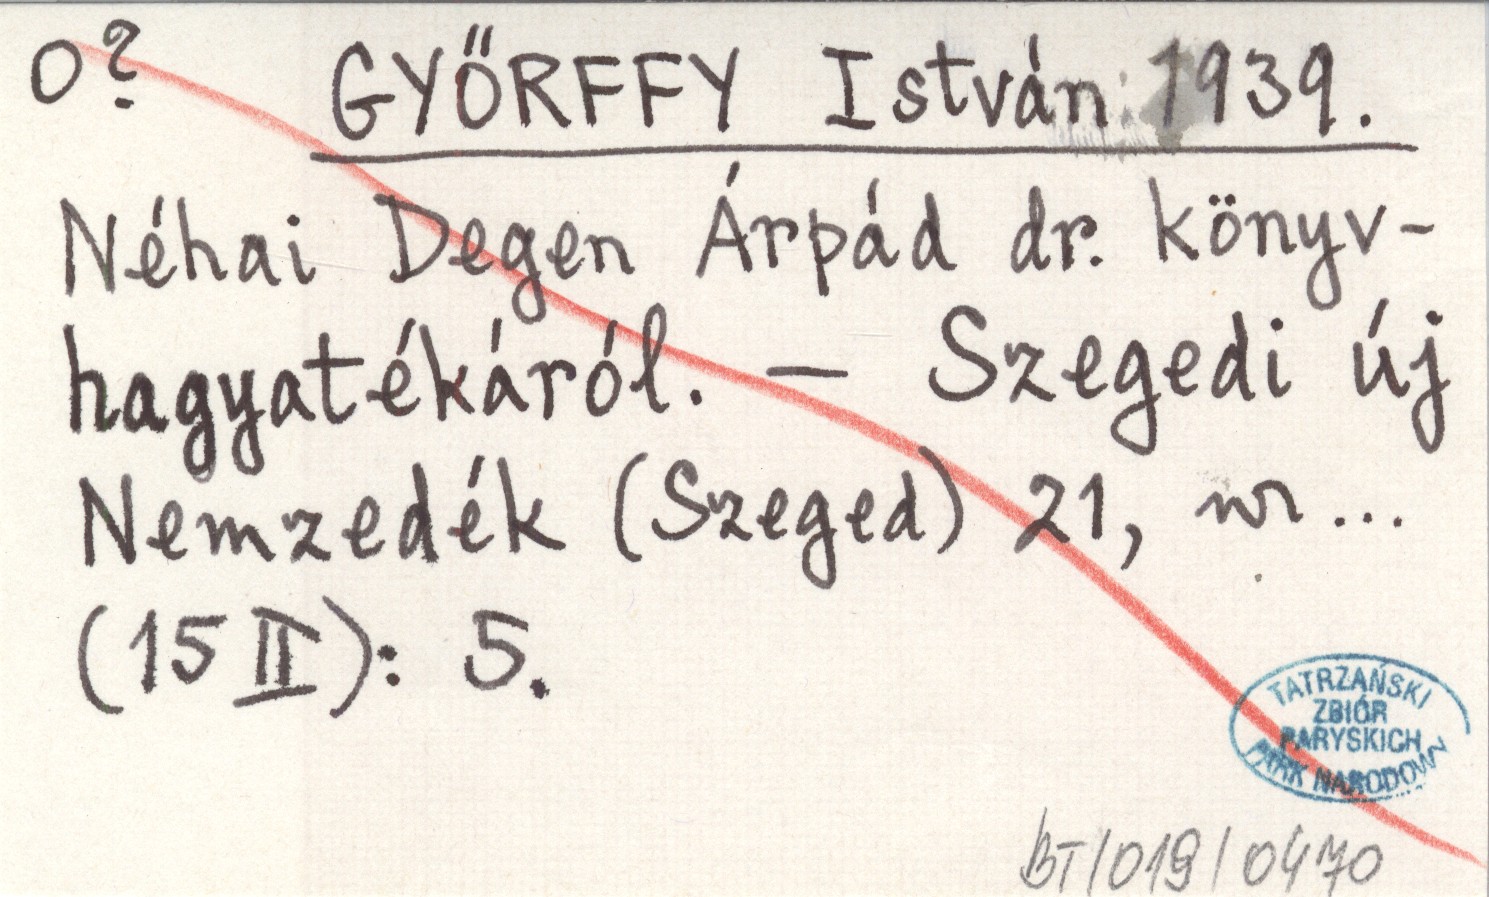 O? GYŐRFFY István 1939.
Néhai Degen Árpád dr. könyv-
hagyatékáról. — Szegedi új
Nemzedék (Szeged) 21, nr...
(15 II): 5.
TATRZAŃSKI
ZBIÓR
PARYSKICH
PARK NARODOWY
BT/019/0470